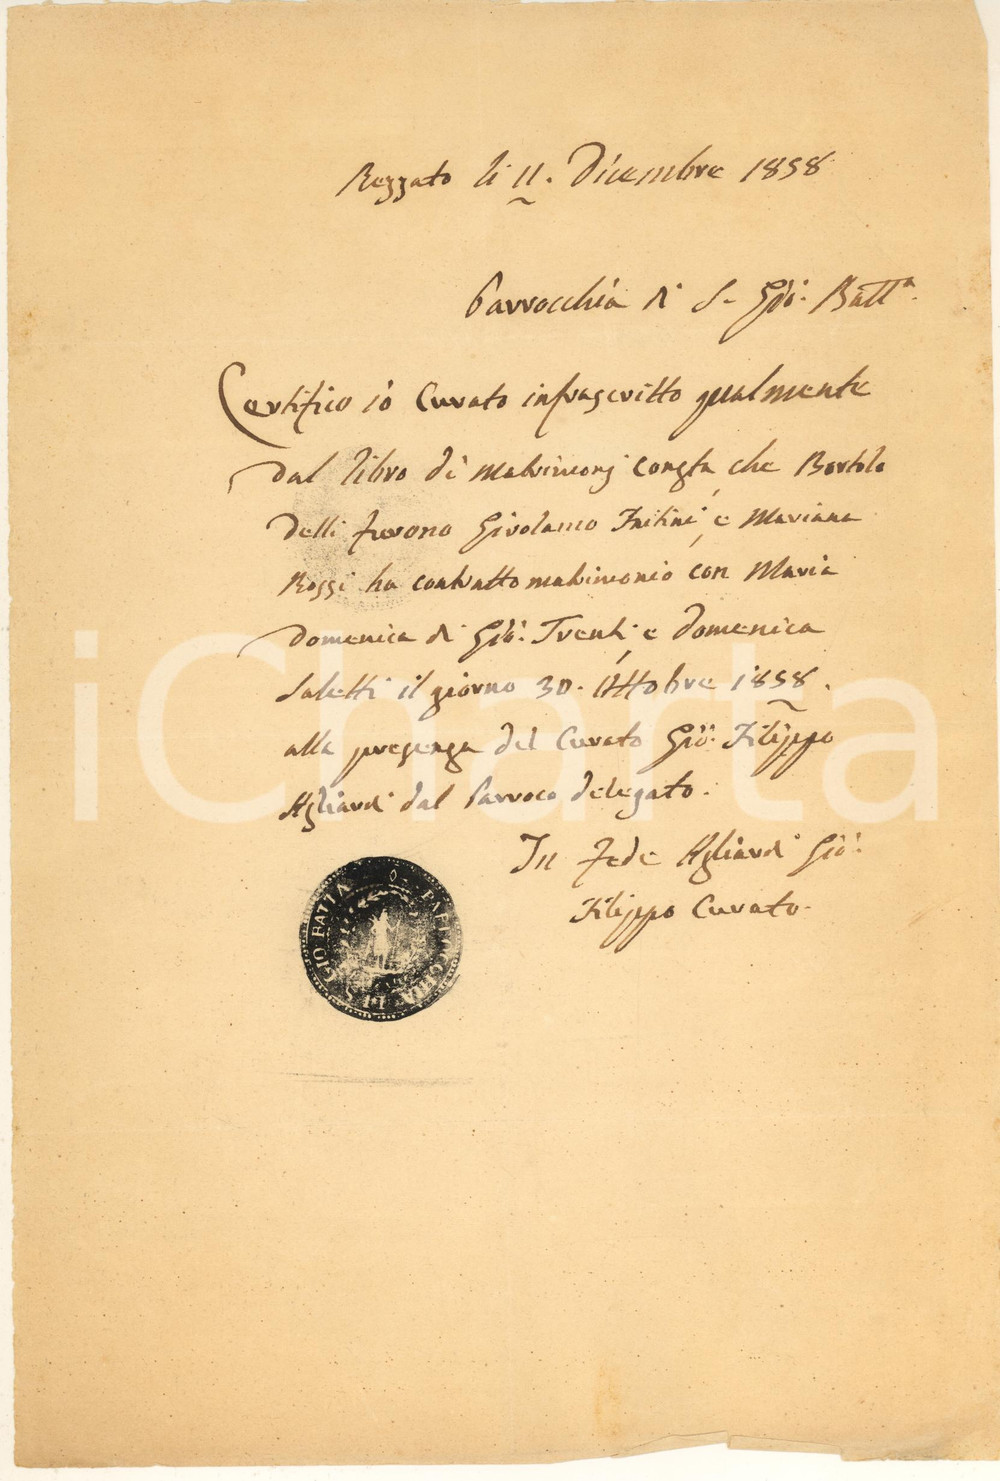 Rezzato li 11. Dicembre 1858
Parrocchia di S. Gio: Batt.a
Certifico io Curato infrascritto qualmente
dal libro di matrimonj consta che Bortolo
delli furono Girolamo e Mariana
Rossi ha contratto matrimonio con Maria
Domenica di Gio: Trenti e Domenica
Saletti il giorno 30. Ottobre 1858.
alla presenza del Curato Gio: Filippo
Agliardi dal Parroco delegato.
In fede Agliardi Gio:
Filippo Curato.
PARROCCHIA DI S. GIO BATTA
iCharta